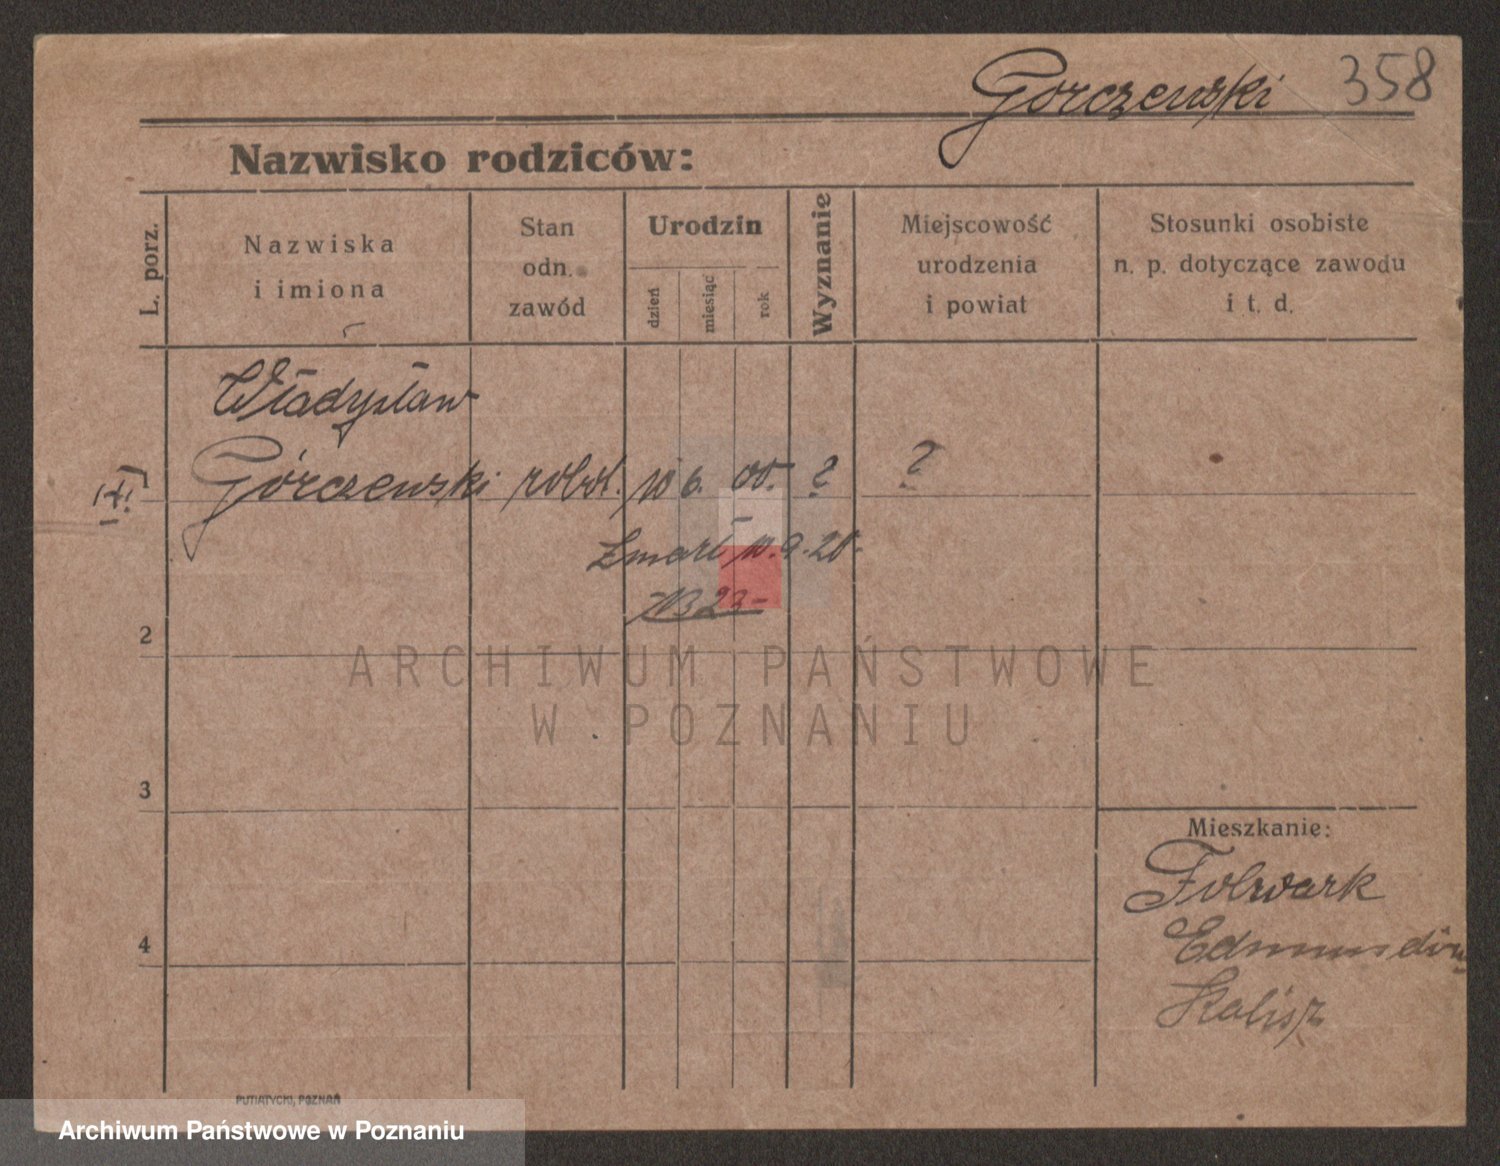 Gorczewski 358
Nazwisko rodziców:
L. porz.
Nazwiska
i imiona
Stan
odn.
zawód
Urodzin
dzień
miesiąc
rok
Wyznanie
Miejscowość
urodzenia
i powiat
Stosunki osobiste
n. p. dotyczące zawodu
i t. d.
Władysław
Górczewski robot. 10 6. 00. ? ?
Zmarł 10. 9. 20.
23
2
ARCHIWUM PAŃSTWOWE
W POZNANIU
3
Mieszkanie:
Folwark
Edmundów
Kalisz
4
PUTIATYCKI, POZNAŃ
Archiwum Państwowe w Poznaniu